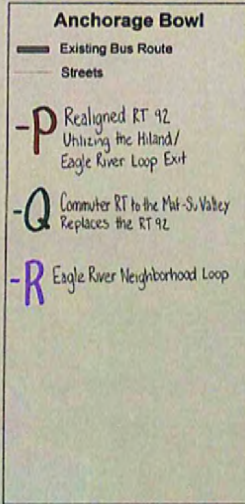 Anchorage Bowl
Existing Bus Route
Streets
-P Realigned RT 92
Utilizing the Hiland/
Eagle River Loop Exit
-Q Commuter RT to the Mat-Su Valley
Replaces the RT 92
-R Eagle River Neighborhood Loop